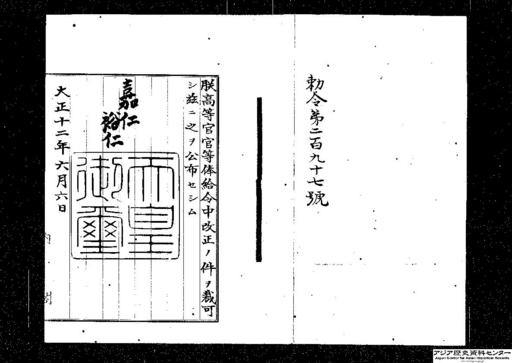 勅令第二百九十七號
朕高等官官等俸給令中改正ノ件ヲ裁可
シ茲ニ之ヲ公布セシム
嘉仁
裕仁
天皇
御璽
大正十二年六月六日
内閣
アジア歴史資料センター
Japan Center for Asian Historical Records